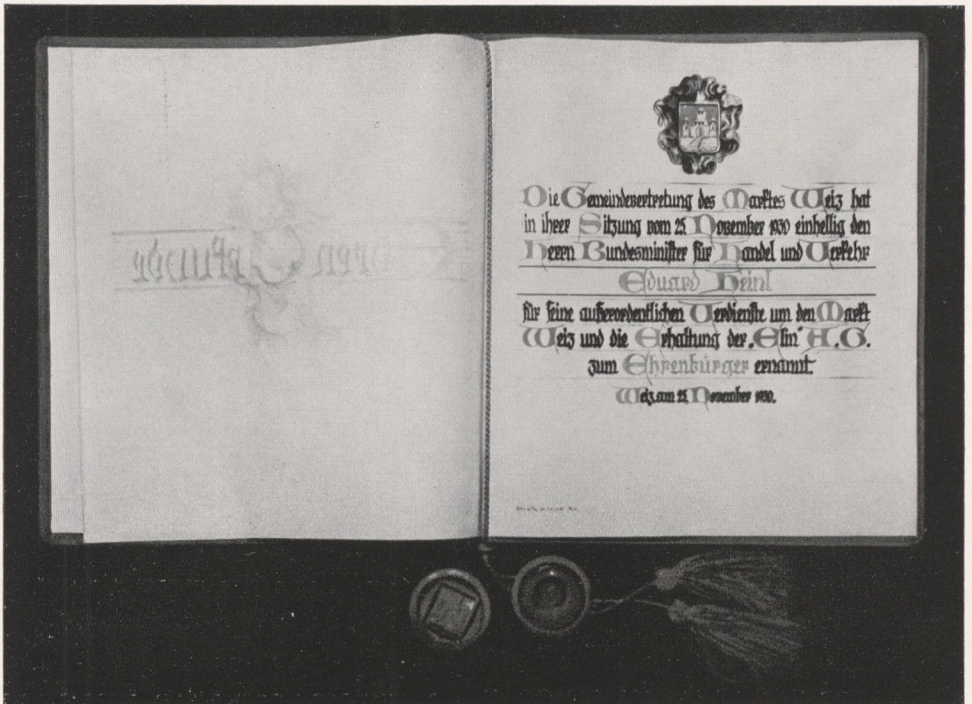 Ehren Urkunde
Die Gemeindevertretung des Marktes Weiz hat
in ihrer Sitzung vom 25. November 1930 einhellig den
Herrn Bundesminister für Handel und Verkehr
Eduard Heinl
für seine außerordentlichen Verdienste um den Markt
Weiz und die Erhaltung der „Elin“ A.G.
zum Ehrenbürger ernannt.
Weiz, am 25. November 1930.